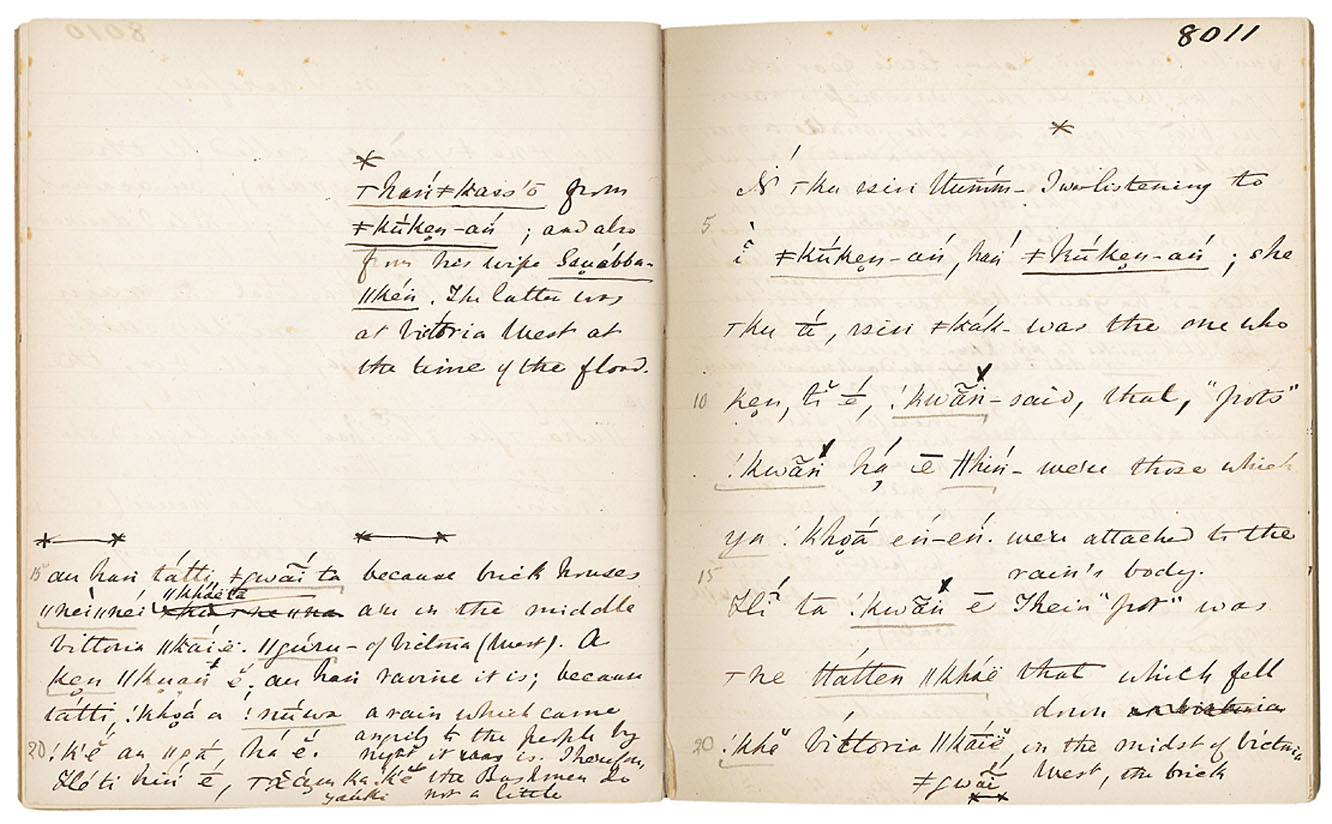 8010
*
ꞱhańꞱkass'ō from
ǂkúken̥-aṅ ; and also
from his wife Sǫuábba-
ǁkén. The latter was
at Victoria West at
the time of the flood.
15 au han tátti, ǂgwaĩ ta because brick houses
ǁkháëta
ǁneiǁnéi are in the middle
Vittoria ǁkáïë. ǁgúru- of Victoria (West). A
ken ǁkuań é; au han ravine it is; because
tátti, !khǫá a !núwa a rain which came
angrily to the people by
20 !k'ĕ au ǁgá, há é. night it was is. Therefore,
the Bushmen do
yaúki not a little
8011
*
Ń Ʇku ssin ttumm- I was listening to
5 ĭ ǂkúken̥-aṅ, hań ǂkúken̥-aṅ ; she
Ʇku ā́, ssin ǂkák- was the one who
10 ken, tĭ é, !kwãń- said, that, "pots"
!kwãń há̧ ē ǁhiń- were those which
ya !khǫá eń-eń. were attached to the
rain's body.
15 Hĭ ta !kwãń ē Their "pot" was
Ʇne ttátten ǁkháë that which fell
down
20 !khĕ Vittoria ǁkáïë, in the midst of Victoria
West, the brick
ǂgwaĩ